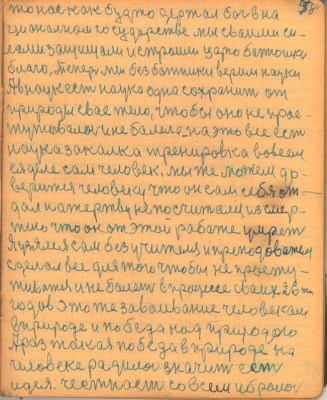 38
то нас как будто держал бог в на
циональном государстве мы своими си-
лами защищали и строили царю батюшке
благо, Теперь мы без батюшки верим науки
А в науке ест наука одна сохранит от
природы свае тело, чтобы оно не прос-
тутовалос и не балела, на это все ест
наука закалка тренировка во всем
сам человек. мы же можем до-
вериться человеку что он сам себя от-
дал на жертву не посчитался из смер-
тию что он от этой работе умрет
Я узялся сам без учителя и преподователя
сделал все для того чтобы не просту-
живатся и не балет в процесе своих 26ти
годов это же завоевание человеком
в природе и победа над природою
А раз такая победа в природе на
человеке родилос значит ест
идея. честност совсем